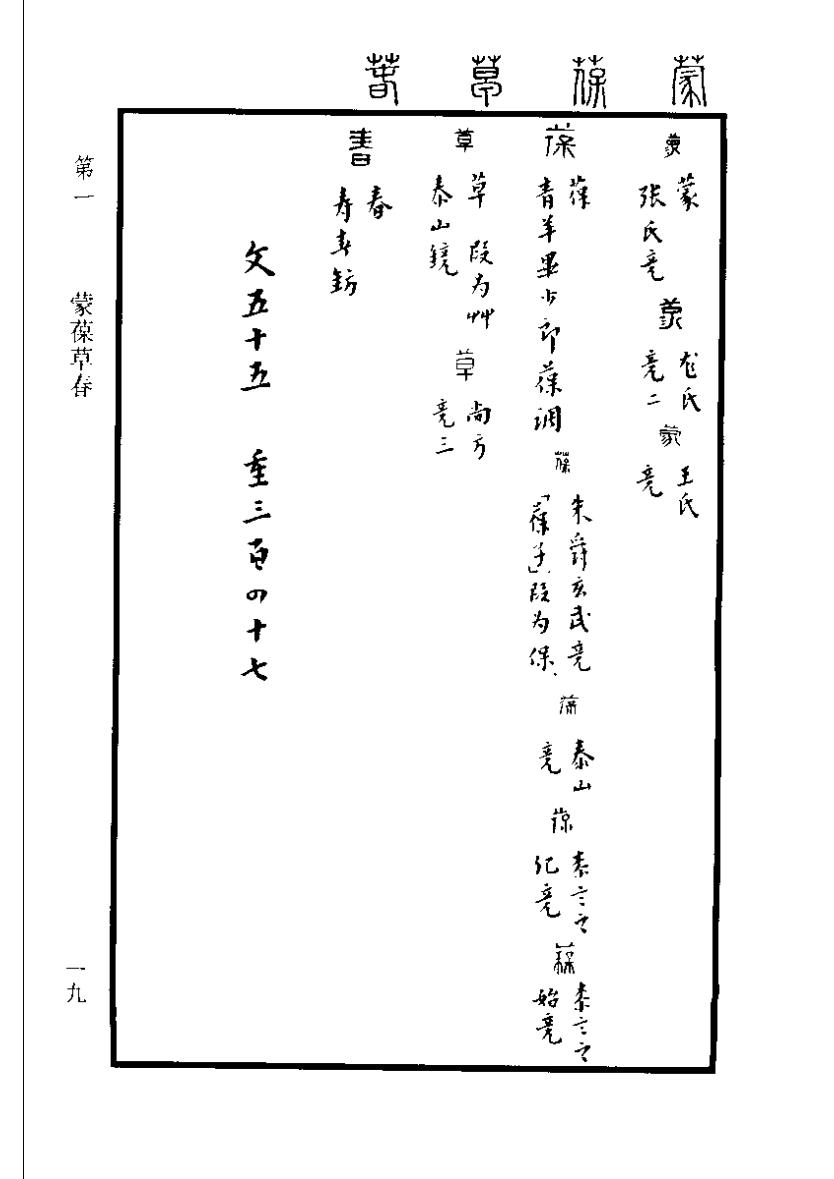 蒙 葆 草 春
蒙
蒙
張氏竟
蒙
龙氏
竟二
蒙
王氏
竟
葆
葆
青羊畢少郎葆调
葆
朱爵玄武竟
「葆子」段为保、
葆
泰山
竟
葆
桼言之
纪竟
葆
桼言之
始竟
草
草 段为艸
泰山镜
草
尚方
竟三
春
春
寿春鈁
文五十五 重三百四十七
第一 蒙葆草春
一九